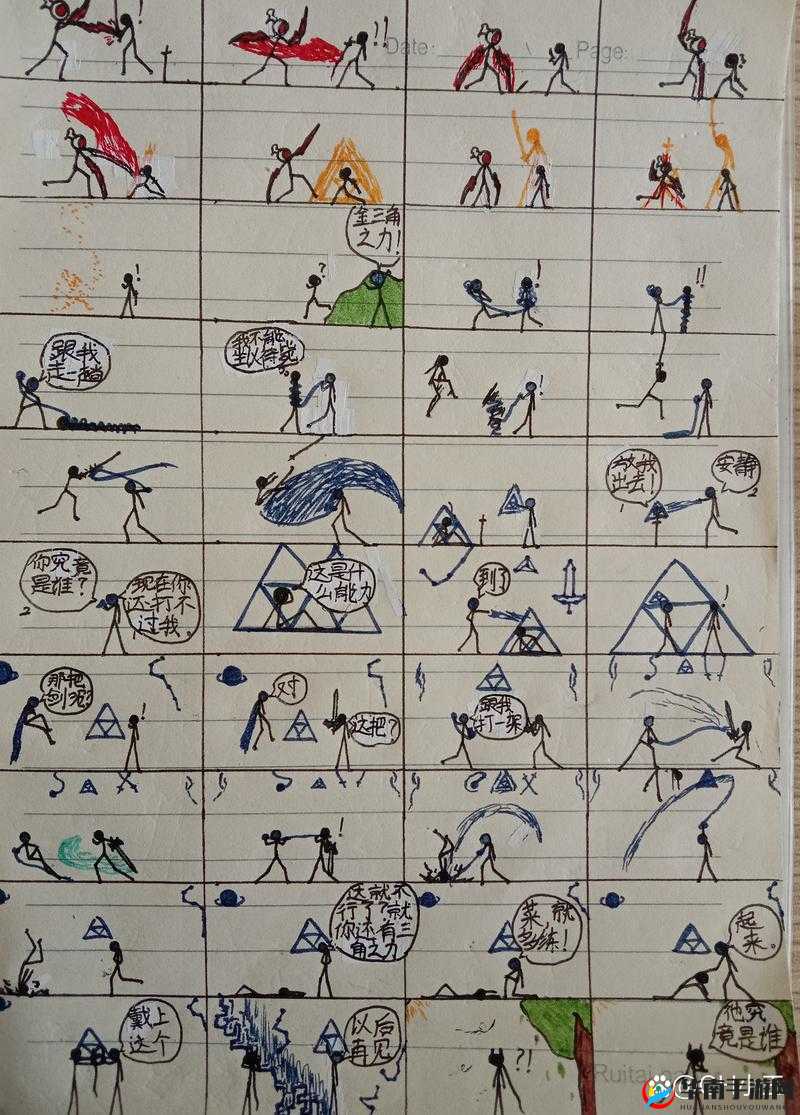 !
!!
Date:
Page:
!
金三角
之力!
?
!
!!
跟我
走一趟
我不能
坐以待毙
。
!
放我
出去!
1
安静
2
你究竟
是谁?
2
现在你
还打不
过我。
这是什
么能力
到了
!
那把
剑呢?
!
对
这把?
跟我
打一架
!
这就不
行了?就
你还有三
角之力
菜,就
多练!
起
来。
戴上
这个
以后
再见
?!
他究
竟是谁
华南手游网
HUANANSHOUYOUWANG